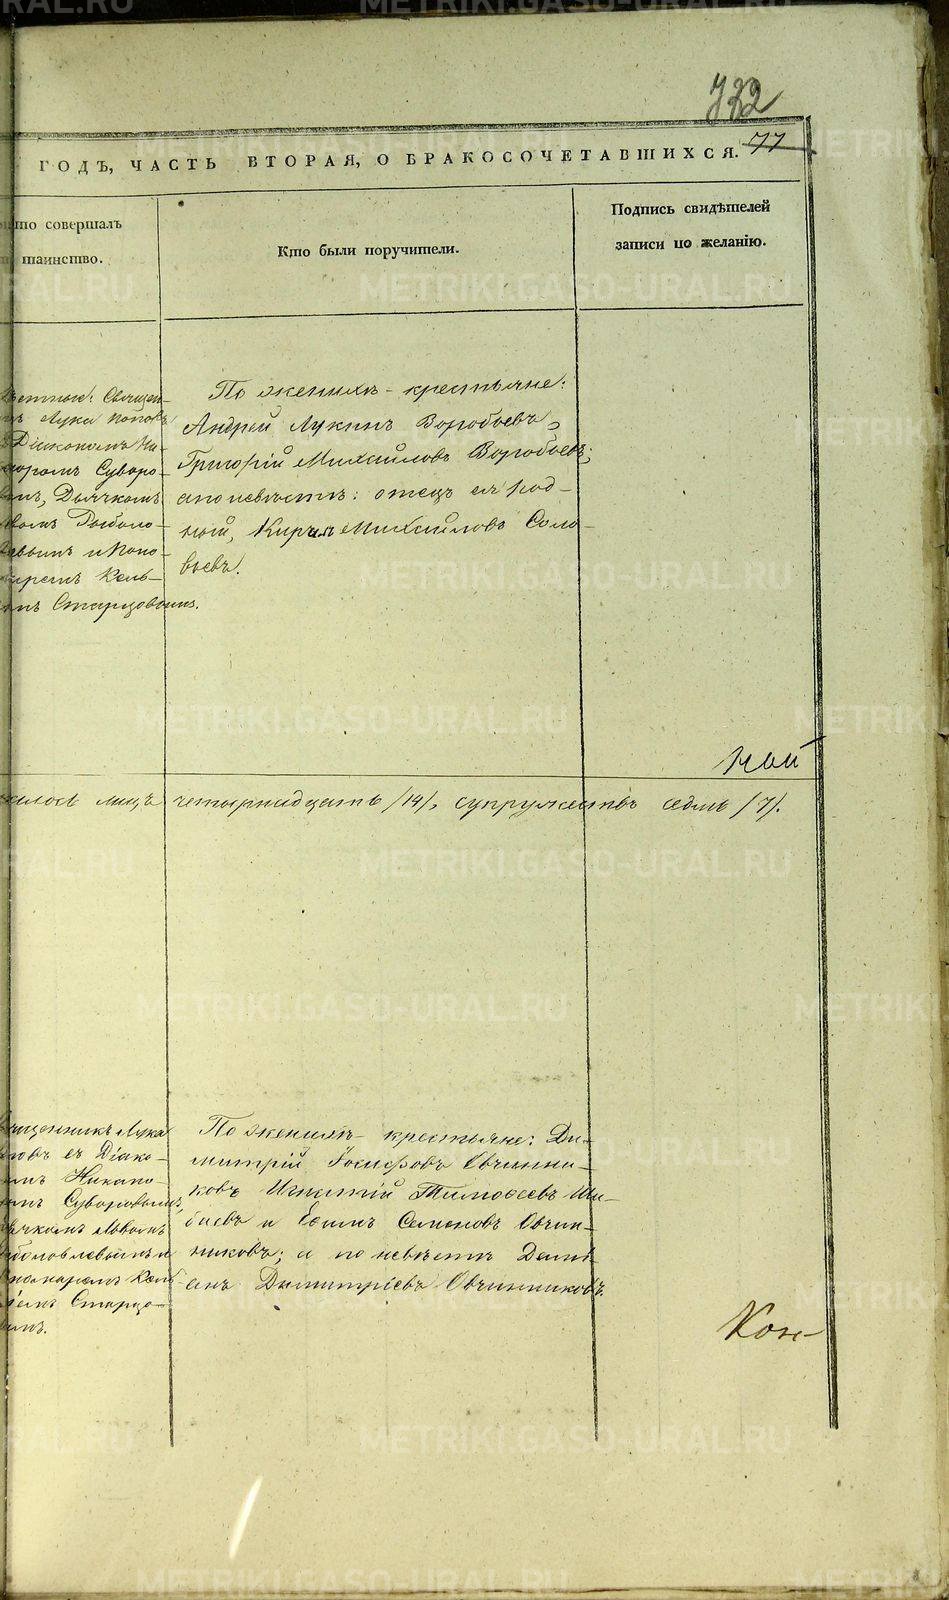 732
77
ГОДЪ, ЧАСТЬ ВТОРАЯ, О БРАКОСОЧЕТАВШИХСЯ.
то совершалъ
таинство.
Кто были поручители.
Подпись свидѣтелей
записи по желанію.
Священ-
Лука Поповъ
Діакономъ Ни-
форомъ Суворо-
Дьячкомъ
Рыболо-
вымъ и Поно-
Старцовымъ.
По женихѣ - крестьяне:
Андрей Лукинъ Воробьевъ,
Григорій Михайловъ Воробьевъ;
а по невѣстѣ: отецъ ея род-
ной, Кирилъ Михайловъ Соло-
вьевъ.
ной
лицъ четырнадцать /14/, супружествъ седмь /7/.
Священникъ Лука
съ Діако-
Никано-
Суворовымъ,
Дьячкомъ Львомъ
и
Старцо-
вымъ.
По женихѣ - крестьяне: Ди-
митрій Іосифовъ Овчинни-
ковъ Игнатій Тимофеевъ Ши-
баевъ и Ефимъ Семеновъ Овчин-
никовъ; а по невѣстѣ Деми-
анъ Димитріевъ Овчинниковъ.
Кон-
METRIKI.GASO-URAL.RU